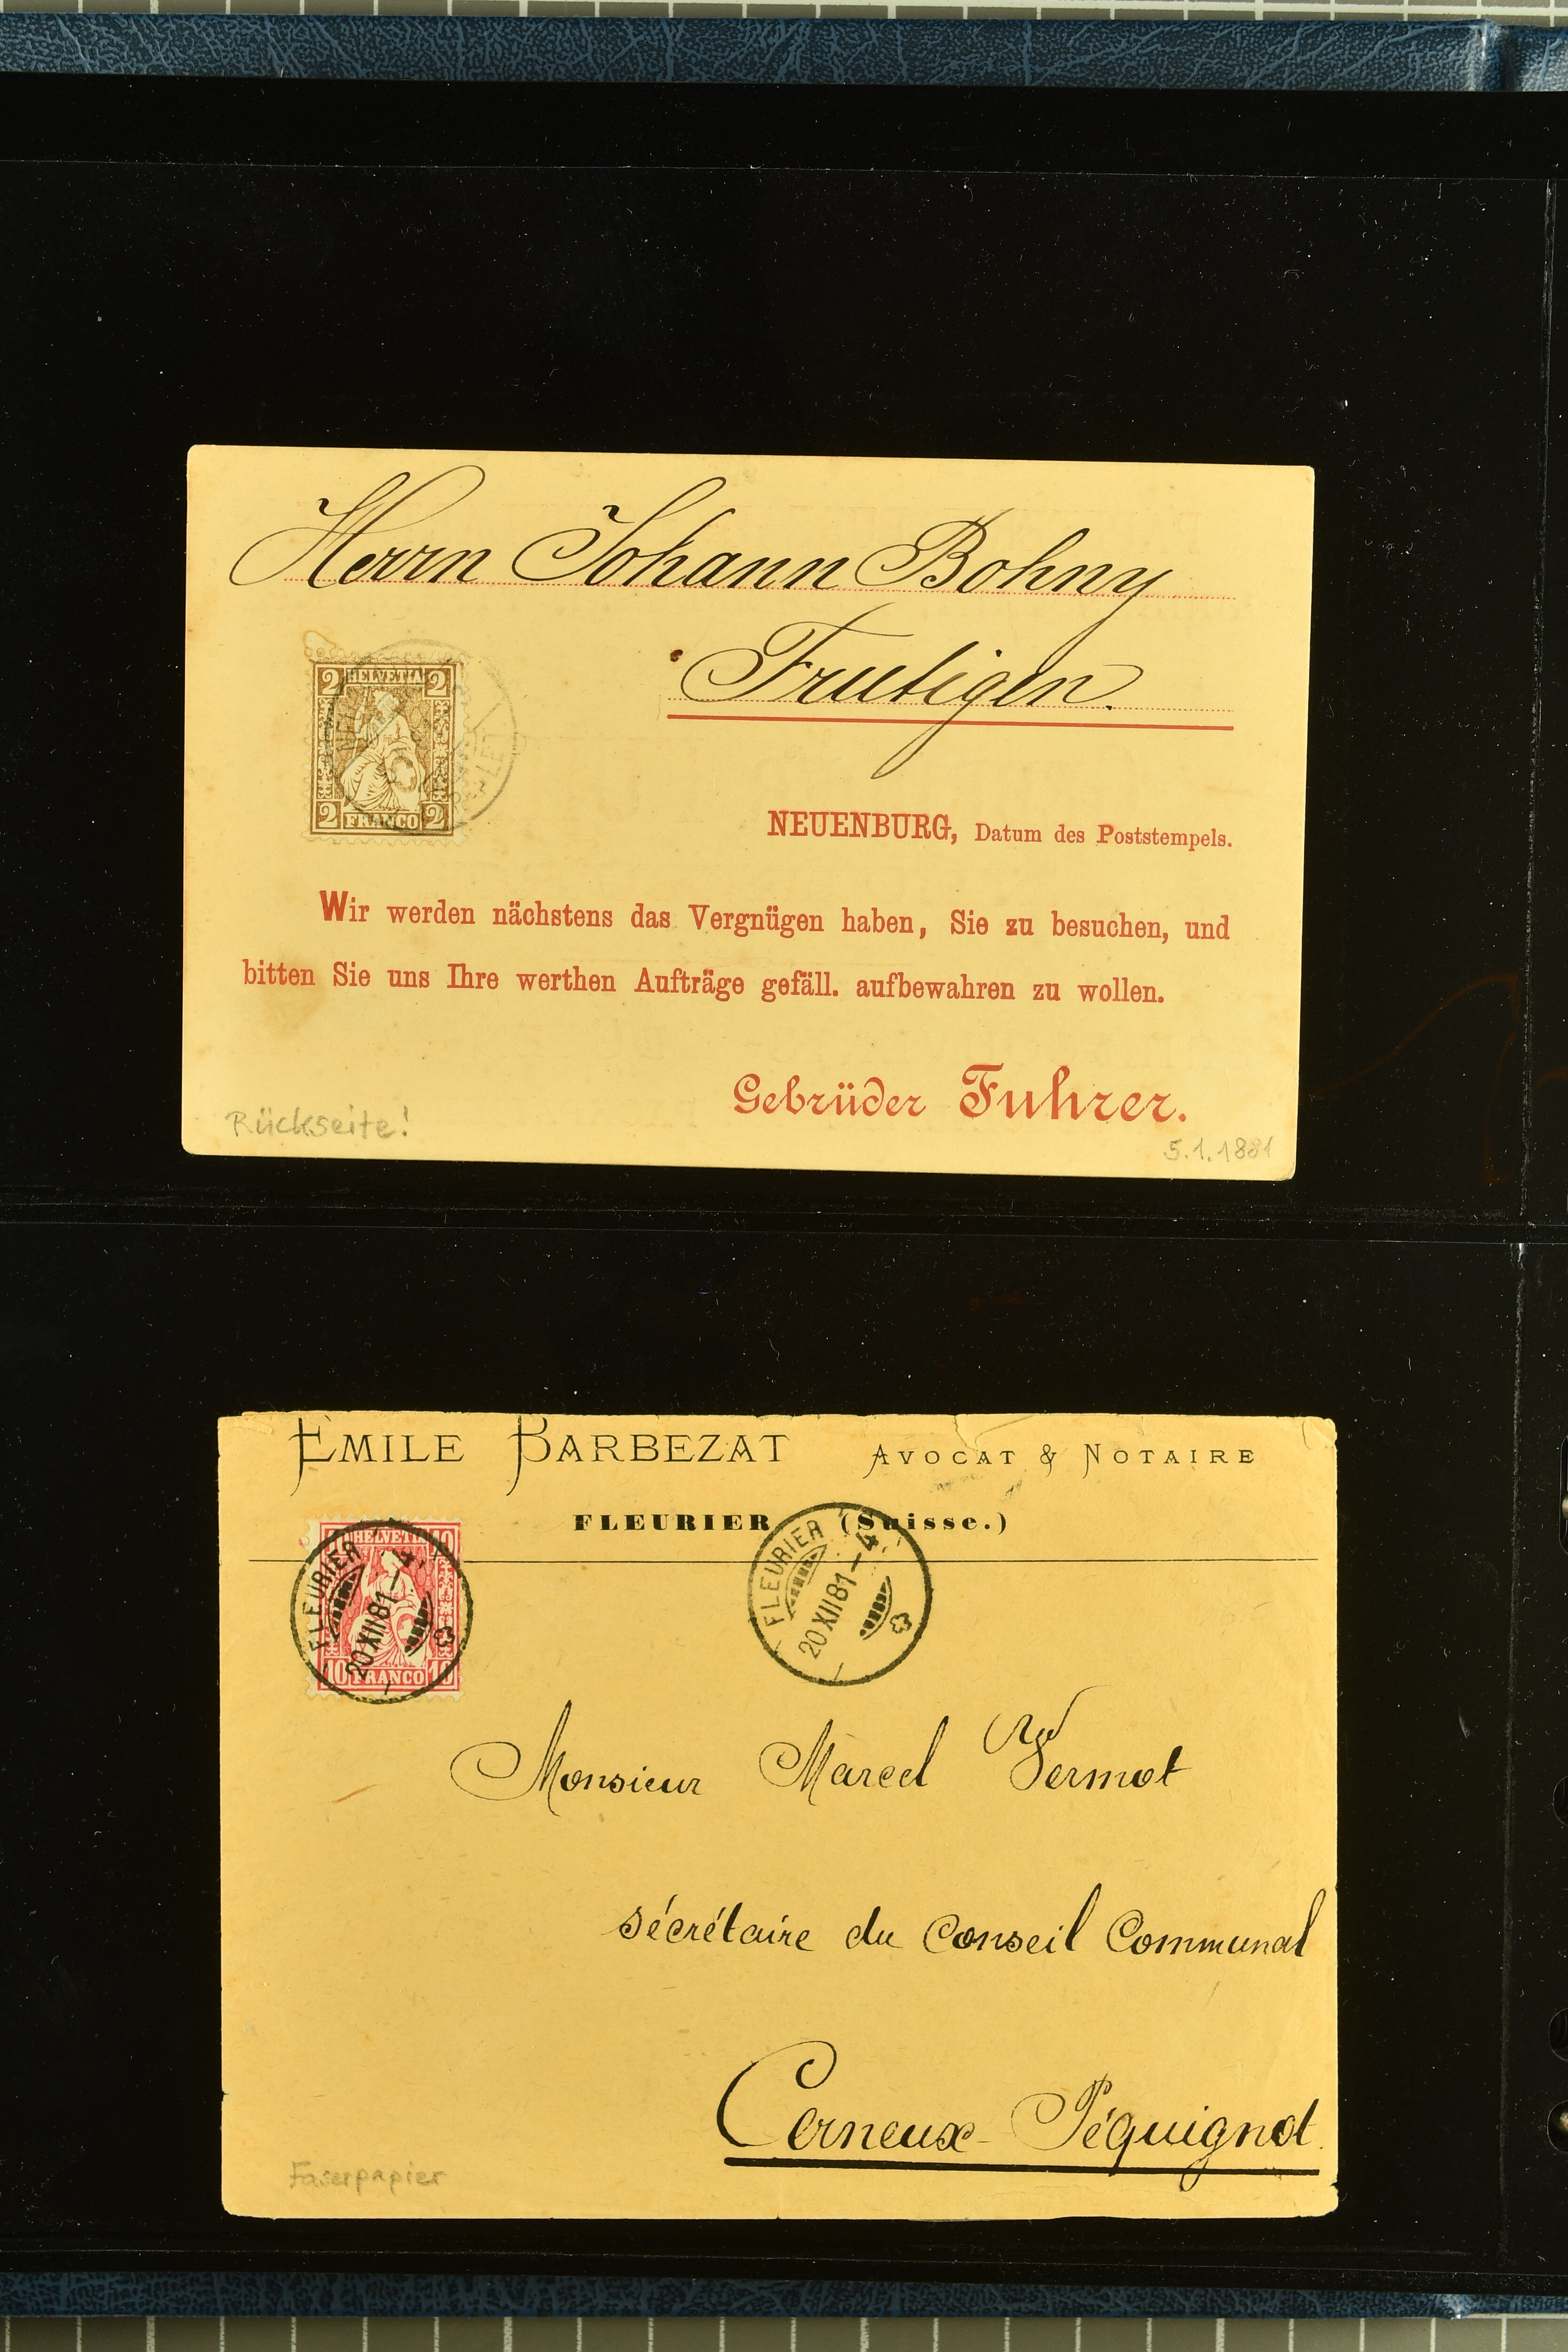 Herrn Johann Bohny
Frutigen.
2 HELVETIA 2
2 FRANCO 2
NEUENBURG, Datum des Poststempels.
Wir werden nächstens das Vergnügen haben, Sie zu besuchen, und
bitten Sie uns Ihre werthen Aufträge gefäll. aufbewahren zu wollen.
Gebrüder Fuhrer.
Rückseite!
5.1.1881
EMILE BARBEZAT AVOCAT & NOTAIRE
FLEURIER (Suisse.)
10 HELVETIA 10
FLEURIER
20 XII 81-4
10 FRANCO 10
FLEURIER
20 XII 81-4
Monsieur Marcel Vermot
sécrétaire du Conseil Communal
Cerneux-Péquignot
Faserpapier